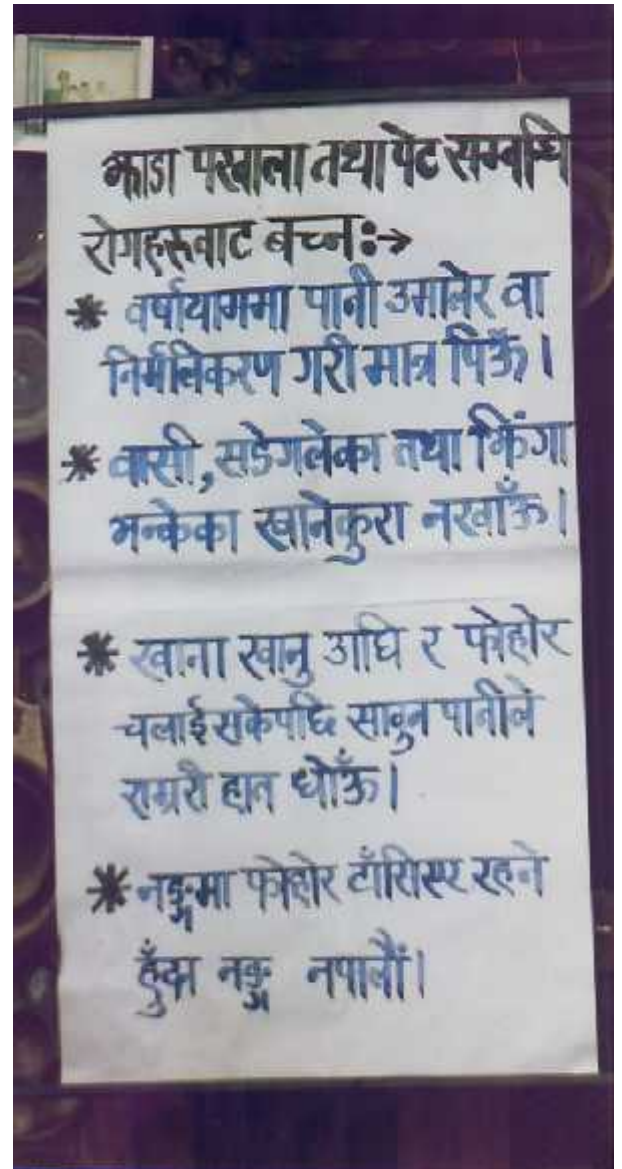 झाडा पखाला तथा पेट सम्बन्धि
रोगहरुवाट बच्न:→
* वर्षायाममा पानी उमालेर वा
निर्मलिकरण गरी मात्र पिऊँ।
* वासी, सडेगलेका तथा झिंगा
भन्केका खानेकुरा नखाँऊ।
* खाना खानु अघि र फोहोर
चलाई सकेपछि सावुन पानीले
राम्ररी हात धोऊँ।
* नङ्गमा फोहोर टाँसिएर रहने
हुँदा नङ्ग नपालौं।